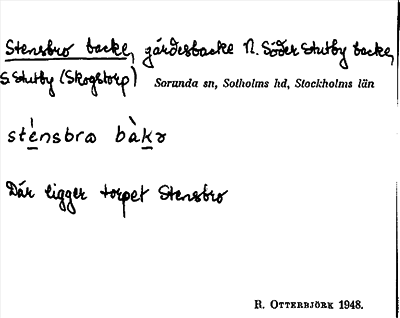 Stensbro backe, gärdesbacke N. Söder Stutby backe,
S. Stutby (Skogstorp) Sorunda sn, Sotholms hd, Stockholms län
stènsbrω bàkə
Där ligger torpet Stensbro
R. OTTERBJÖRK 1948.